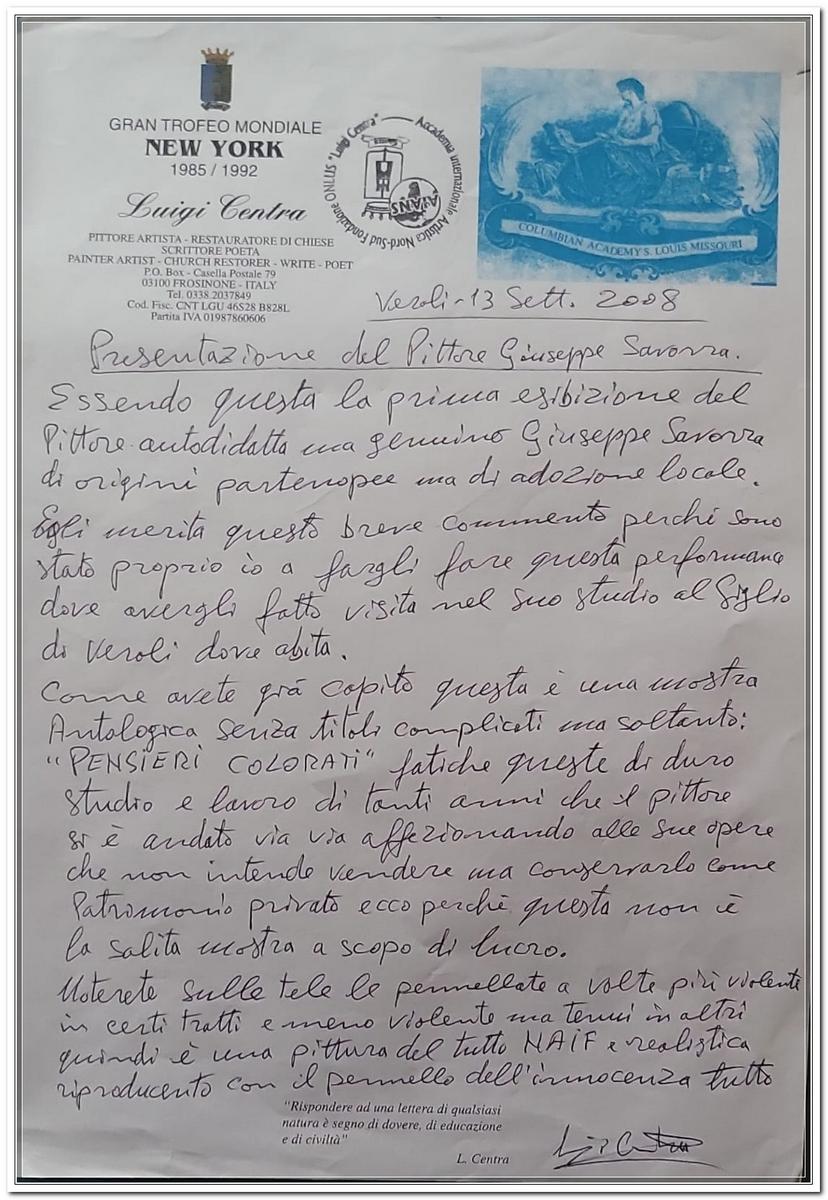 GRAN TROFEO MONDIALE
NEW YORK
1985 / 1992
Luigi Centra
PITTORE ARTISTA - RESTAURATORE DI CHIESE
SCRITTORE POETA
PAINTER ARTIST - CHURCH RESTORER - WRITE - POET
P.O. Box - Casella Postale 79
03100 FROSINONE - ITALY
Tel. 0338.2037849
Cod. Fisc. CNT LGU 46S28 B828L
Partita IVA 01987860606
Accademia Internazionale Artistica Nord-Sud Fondazione ONLUS "Luigi Centra"
COLUMBIAN ACADEMY S. LOUIS MISSOURI
Veroli - 13 Sett. 2008
Presentazione del Pittore Giuseppe Savorra.
Essendo questa la prima esibizione del
Pittore autodidatta ma genuino Giuseppe Savorra
di origini partenopee ma di adozione locale.
Egli merita questo breve commento perchè sono
stato proprio io a fargli fare questa performance
dove avergli fatto visita nel suo studio al Giglio
di Veroli dove abita.
Come avete già capito questa è una mostra
Antologica senza titoli complicati ma soltanto:
"PENSIERI COLORATI" fatiche queste di duro
studio e lavoro di tanti anni che il pittore
si è andato via via affezionando alle sue opere
che non intende vendere ma conservarlo come
Patrimonio privato ecco perchè questa non è
la solita mostra a scopo di lucro.
Noterete sulle tele le pennellate a volte più violente
in certi tratti e meno violente ma tenui in altri
quindi è una pittura del tutto NAIF e realistica
riproducento con il pennello dell'innocenza tutto
"Rispondere ad una lettera di qualsiasi
natura è segno di dovere, di educazione
e di civiltà"
L. Centra
Luigi Centra